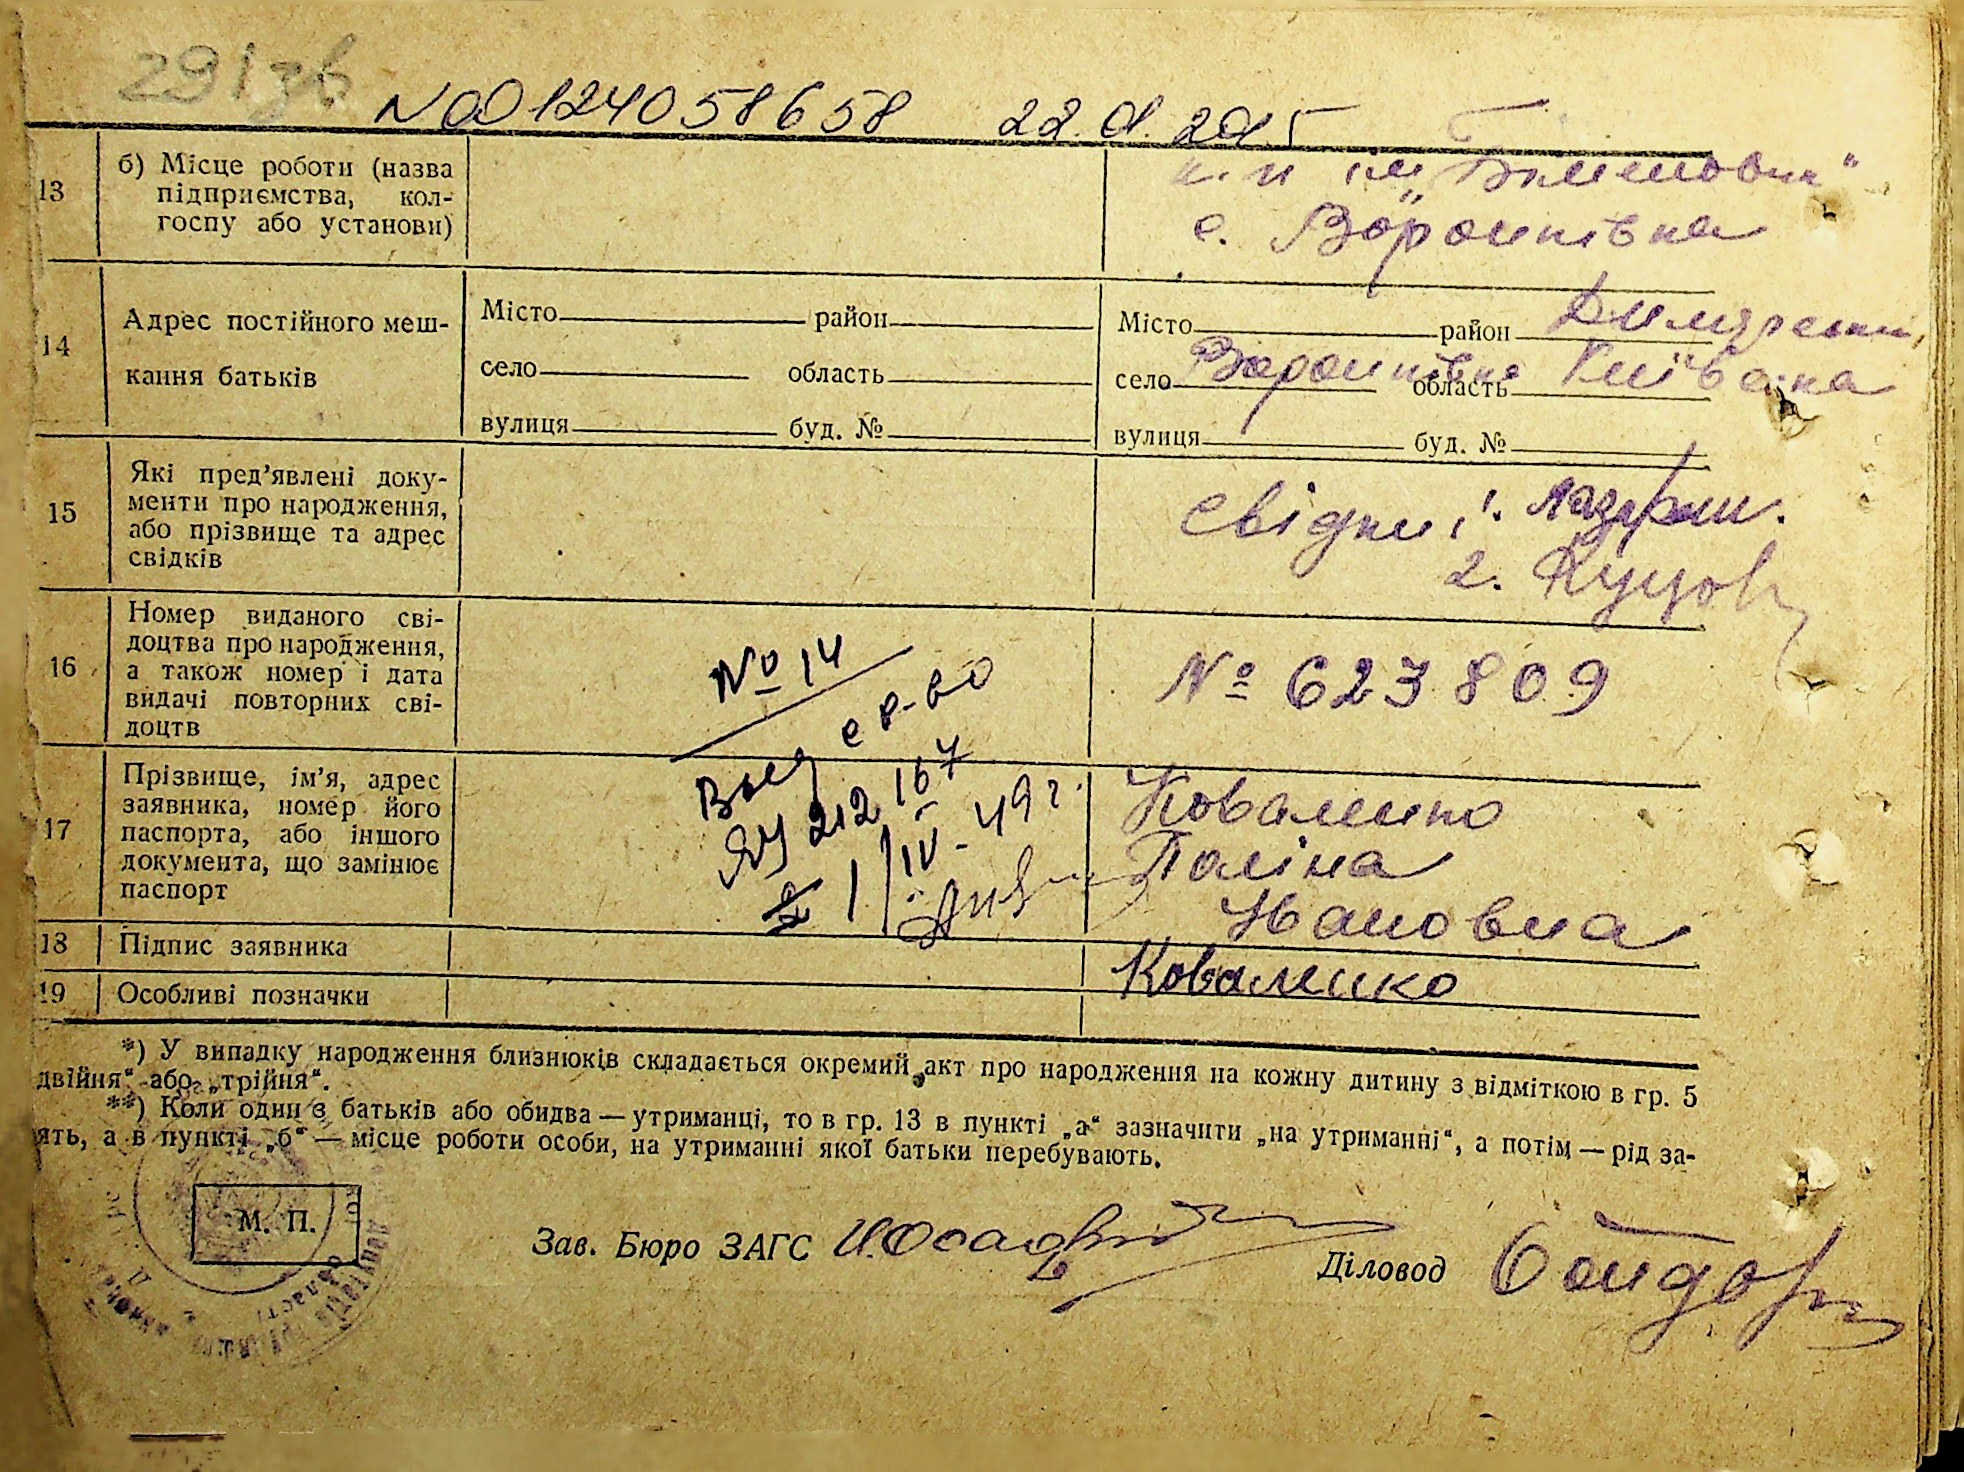 291зв
N00124058658 22.01.2015
13 б) Місце роботи (назва
підприємства, кол-
госпу або установи)
ім "
с. Воронківка
14 Адрес постійного меш-
кання батьків
Місто район
село область
вулиця буд. №
Місто район
село Воронківка область Київська
вулиця буд. №
15 Які пред'явлені доку-
менти про народження,
або прізвище та адрес
свідків
свідки 1.
2. Куцов
16 Номер виданого сві-
доцтва про народження,
а також номер і дата
видачі повторних сві-
доцтв
№ 14
Выд св-во
ЯЧ 212167
1/IV-49 г.
№ 623809
17 Прізвище, ім'я, адрес
заявника, номер його
паспорта, або іншого
документа, що замінює
паспорт
Коваленко
Поліна
Івановна
18 Підпис заявника
Коваленко
19 Особливі позначки
*) У випадку народження близнюків складається окремий акт про народження на кожну дитину з відміткою в гр. 5
двійня“ або „трійня“.
**) Коли один з батьків або обидва — утриманці, то в гр. 13 в пункті „а“ зазначити „на утриманні“, а потім — рід за-
ять, а в пункті „б“ — місце роботи особи, на утриманні якої батьки перебувають.
М. П.
Зав. Бюро ЗАГС
Діловод
області